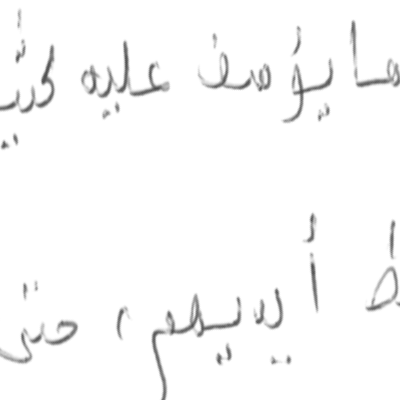 ما يؤسف عليه كثي
أيديهم، حتى